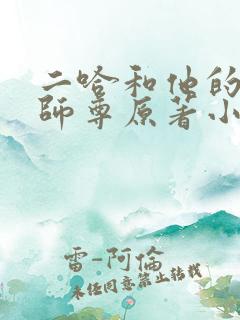 二哈和他的
師尊原著小
雷-阿倫
未经同意禁止转载